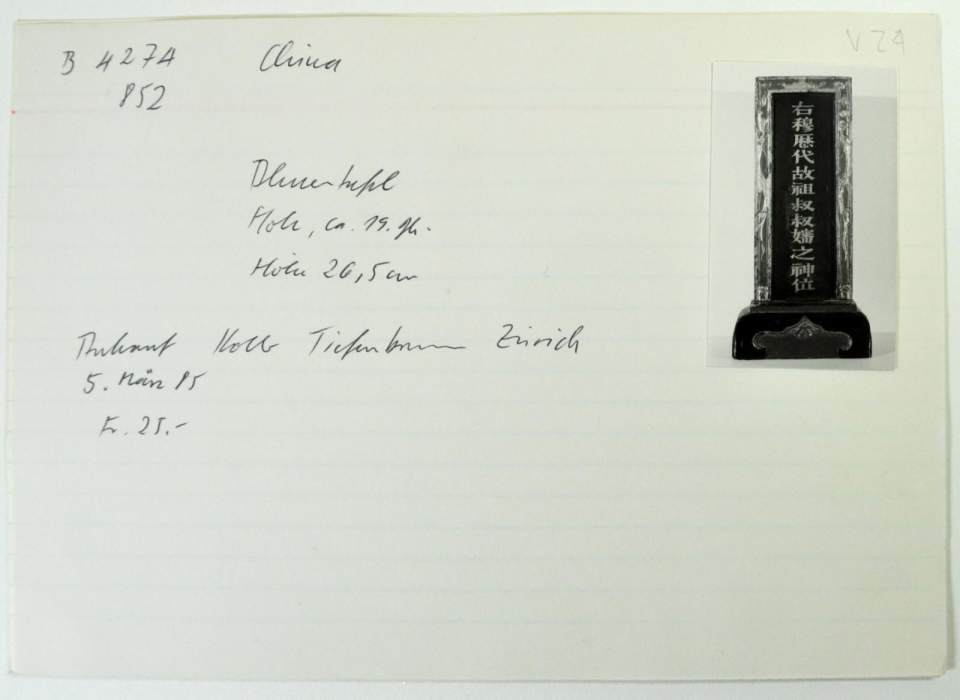 B 4274 China
852
V 24
Ahnentafel
Holz, ca. 19. Jh.
Höhe 26,5 cm
Ankauf Koller Tiefenbrunn Zürich
5. März 85
Fr. 25.-
右穆歷代故祖叔叔嬸之神位